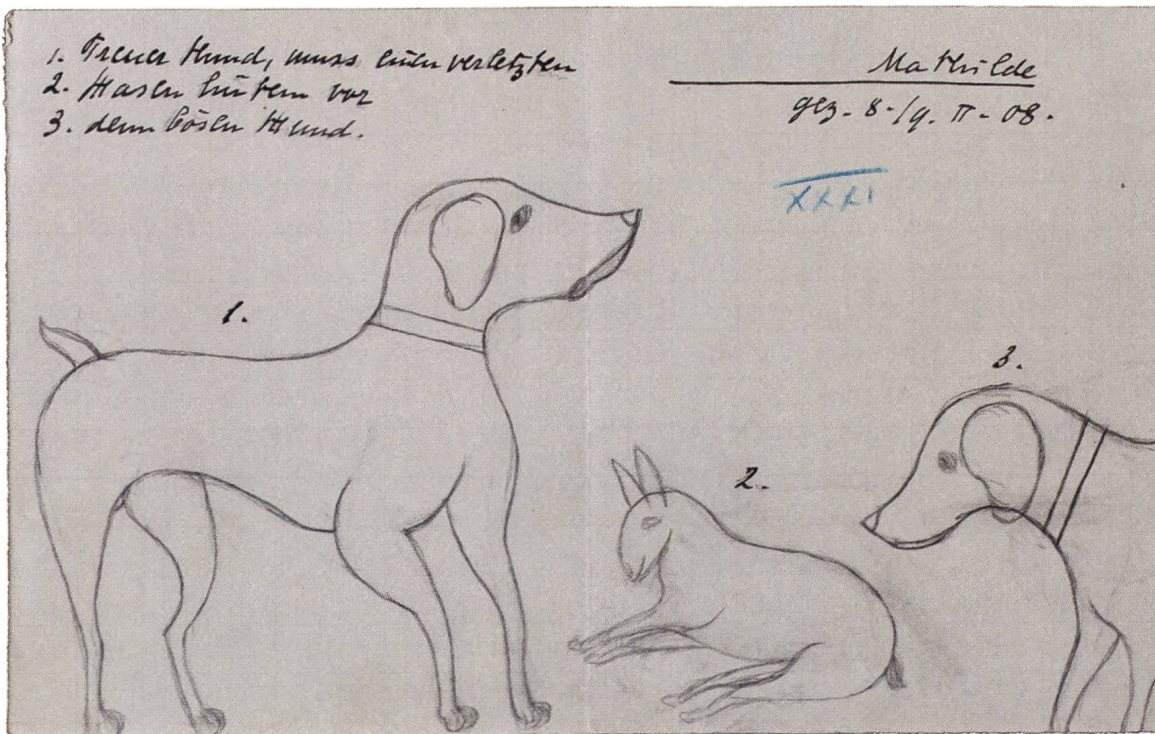 1. Treuer Hund, muss einen verletzten
2. Hasen hütem vor
3. dem bösen Hund.
Mathilde
gez. 8./9. II. 08.
XXXI
1.
3.
2.